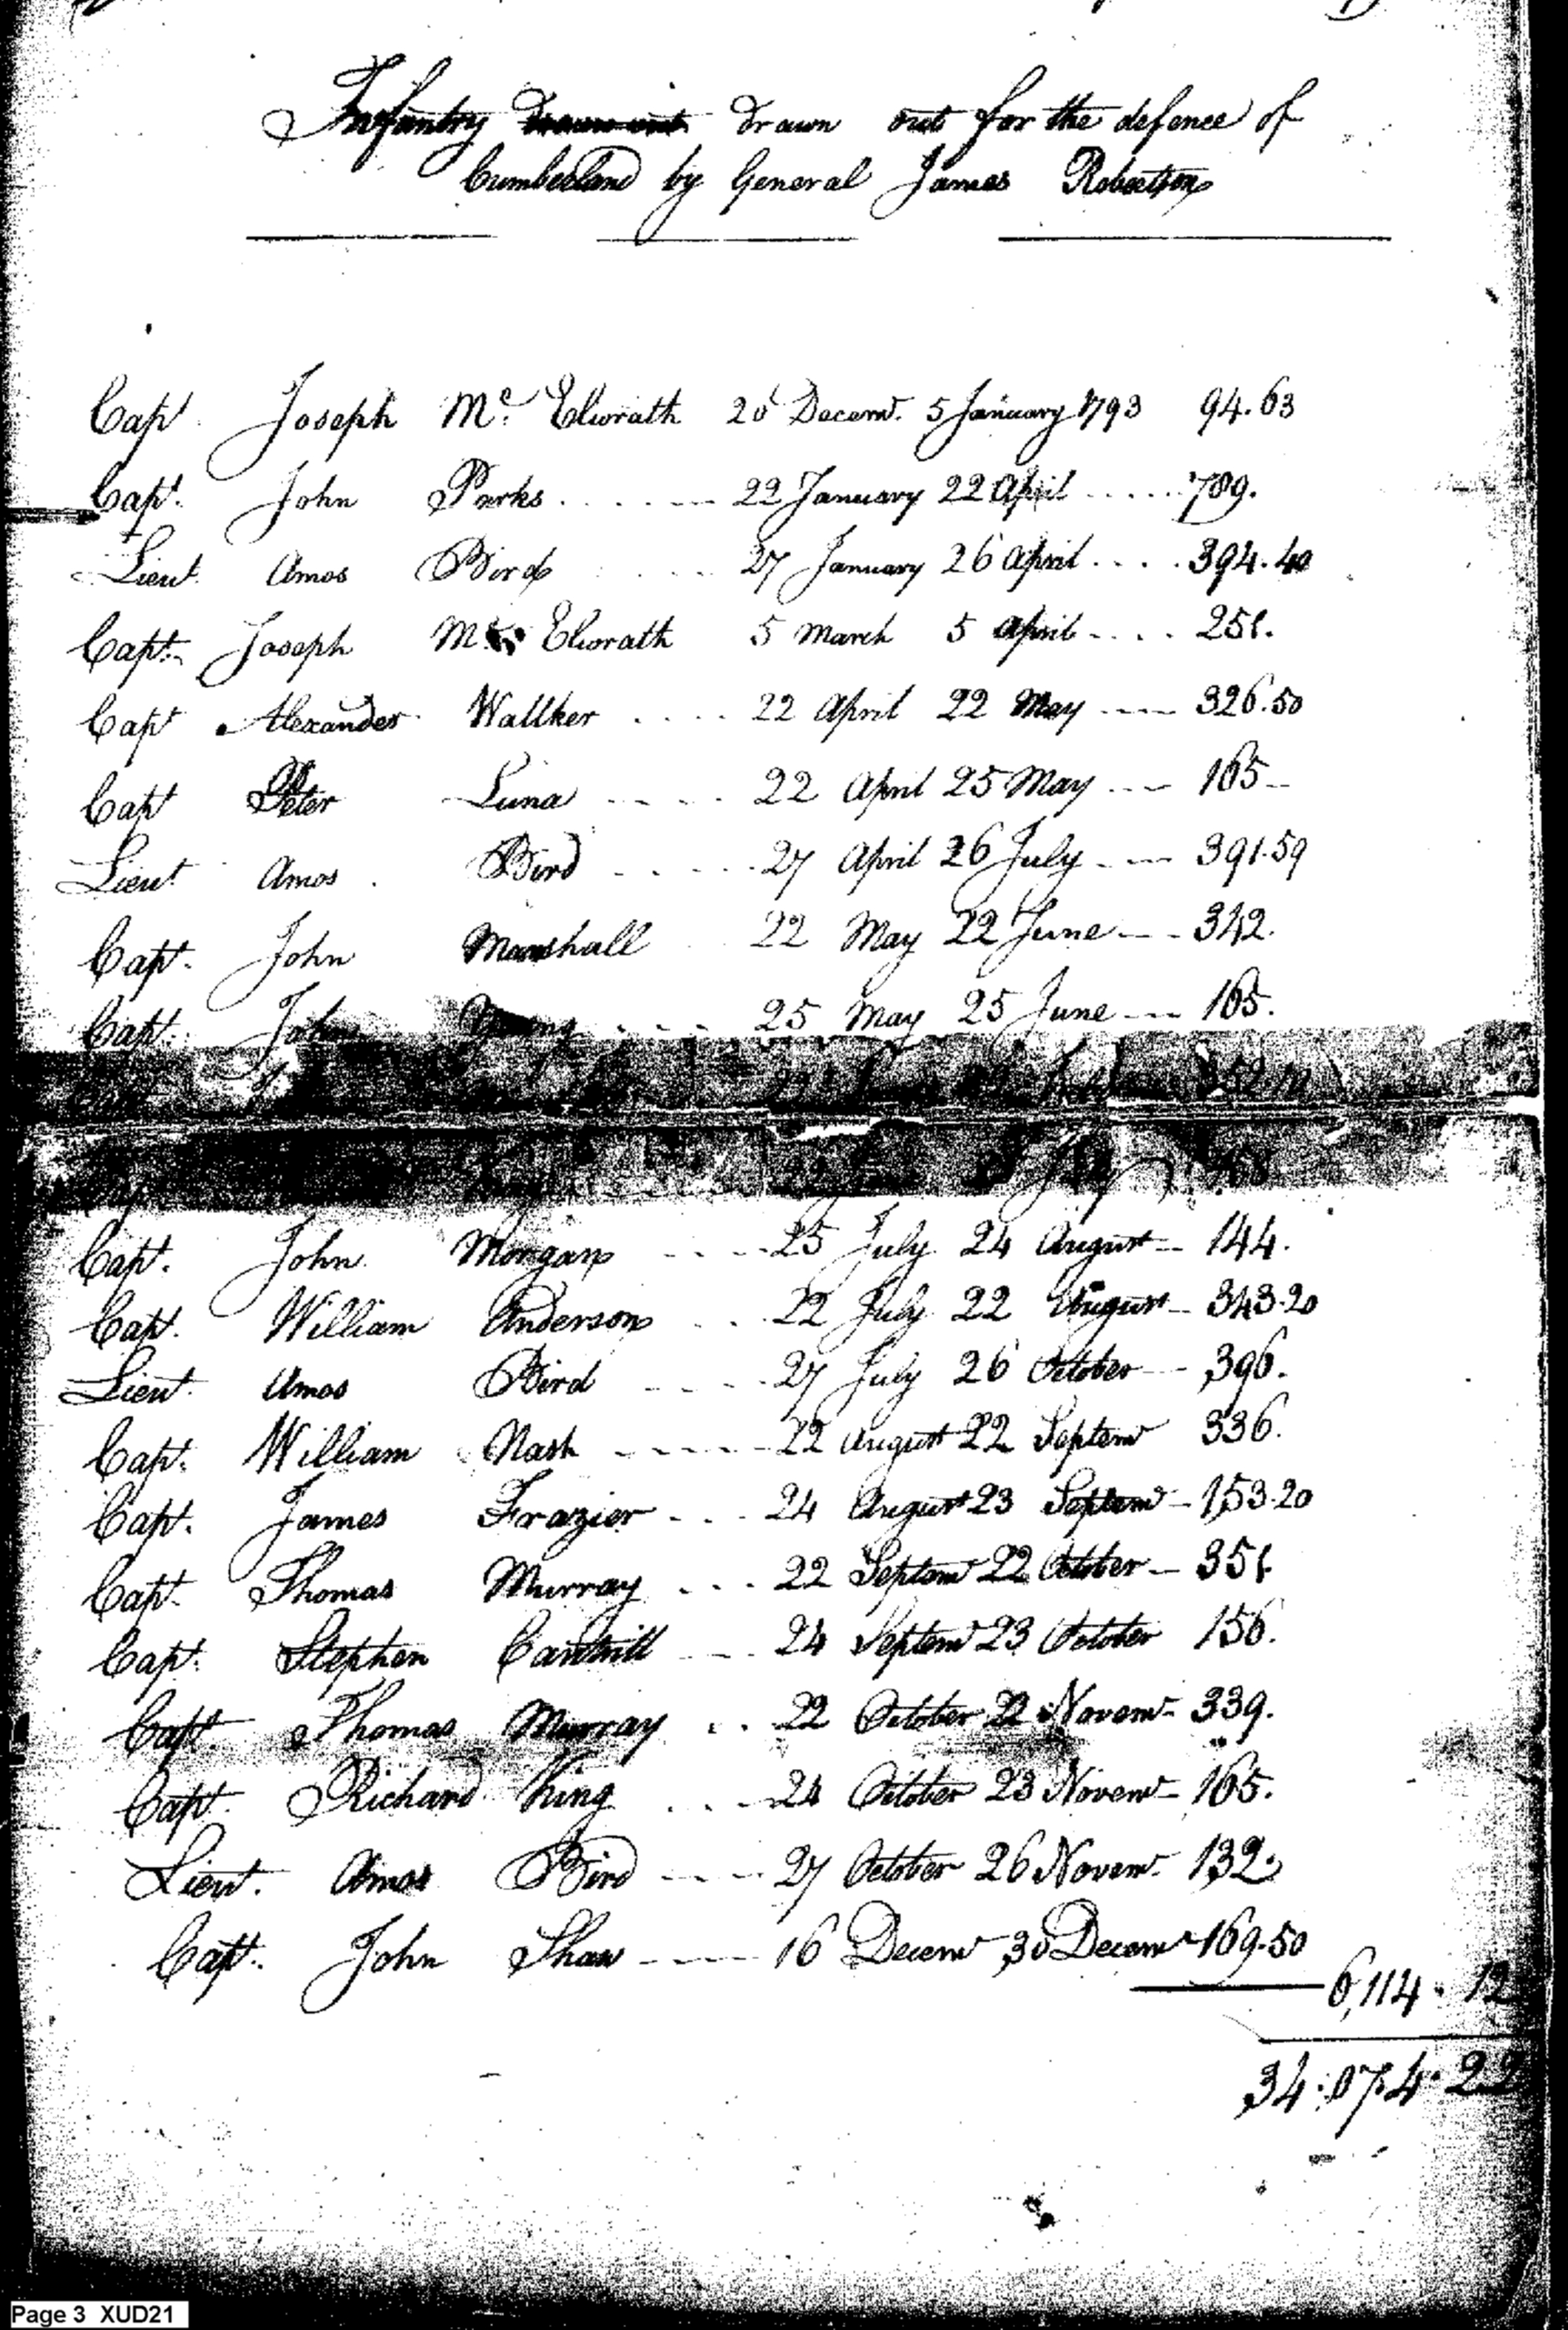 Infantry drawn out for the defence of
Cumberland by General James Robertson
Capt Joseph Mc. Elwrath 20 Decemr. 5 January 1793 94.63
Capt. John Parks ...... 22 January 22 April ..... 789.
Lieut. Amos Bird .... 27 January 26 April .... 394.40
Capt. Joseph Mc Elwrath 5 March 5 April .... 251.
Capt Alexander Wallker .... 22 April 22 May ---- 326.50
Capt Peter Luna ---- 22 April 25 May --- 165--
Lieut Amos Bird ..... 27 April 26 July ---- 391.59
Capt. John Marshall 22 May 22 June --- 342.
Capt. John Young .... 25 May 25 June --- 165.
Capt. John Morgan ---- 25 July 24 August -- 144.
Capt. William Anderson ... 22 July 22 August -- 343.20
Lieut. Amos Bird ---- 27 July 26 October --- 396.
Capt. William Nash ----- 22 August 22 Septemr 336.
Capt. James Frazier ... 24 August 23 Septemr -- 153.20
Capt. Thomas Murray ... 22 Septemr 22 October -- 351.
Capt. Stephen Cantrill ---- 24 Septemr 23 October 156.
Capt. Thomas Murray .. 22 October 22 Novemr - 339.
Capt. Richard King .... 24 October 23 Novemr - 165.
Lieut. Amos Bird ---- 27 October 26 Novemr. 132.
Capt. John Shaw ---- 16 Decemr 30 Decemr 169.50
6,114.12
34.074.22
Page 3 XUD21